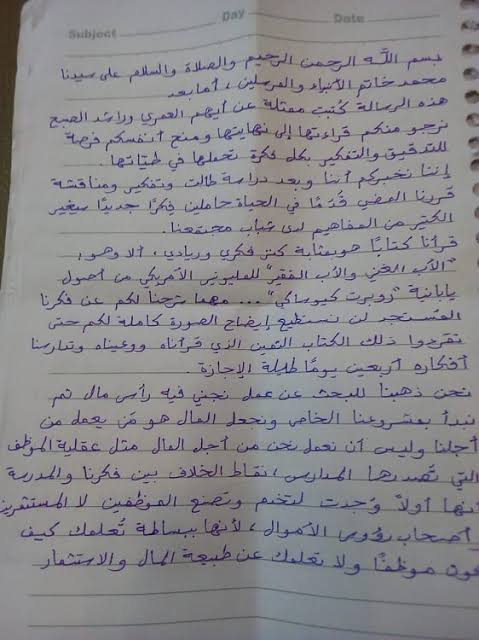 Subject Day Date
بسم الله الرحمن الرحيم والصلاة والسلام على سيدنا
محمد خاتم الأنبياء والمرسلين، أما بعد
هذه الرسالة كُتبت ممثلة عن أيهم العمري وراشد الصبح
نرجو منكم قراءتها إلى نهايتها ومنح أنفسكم فرصة
للتدقيق والتفكير بكل فكرة تحملها في طياتها.
إننا نخبركم أننا وبعد دراسة طالت وتفكير ومناقشة
قررنا المضي قدمًا في الحياة حاملين فكرًا جديدًا سيغير
الكثير من المفاهيم لدى شباب مجتمعنا.
قرأنا كتابًا هو بمثابة كنز فكري وريادي، ألا وهو:
"الأب الغني والأب الفقير" للمليونير الأمريكي من أصول
يابانية "روبرت كيوساكي"... مهما شرحنا لكم عن فكرنا
المستجد لن نستطيع إيضاح الصورة كاملة لكم حتى
تقرأوا ذلك الكتاب الثمين الذي قرأناه ووعيناه وتدارسنا
أفكاره أربعين يومًا طيلة الإجازة.
نحن ذهبنا للبحث عن عمل نجني فيه رأس مال ثم
نبدأ بمشروعنا الخاص ونجعل المال هو مَن يعمل من
أجلنا وليس أن نعمل نحن من أجل المال مثل عقلية الموظف
التي تُصدرها المدارس، نقاط الخلاف بين فكرنا والمدرسة
أنها أولاً وُجدت لتخدم وتصنع الموظفين لا المستثمرين
وأصحاب رؤوس الأموال، لأنها ببساطة تُعلمك كيف
موظفًا ولا تعلمك عن طبيعة المال والاستثمار